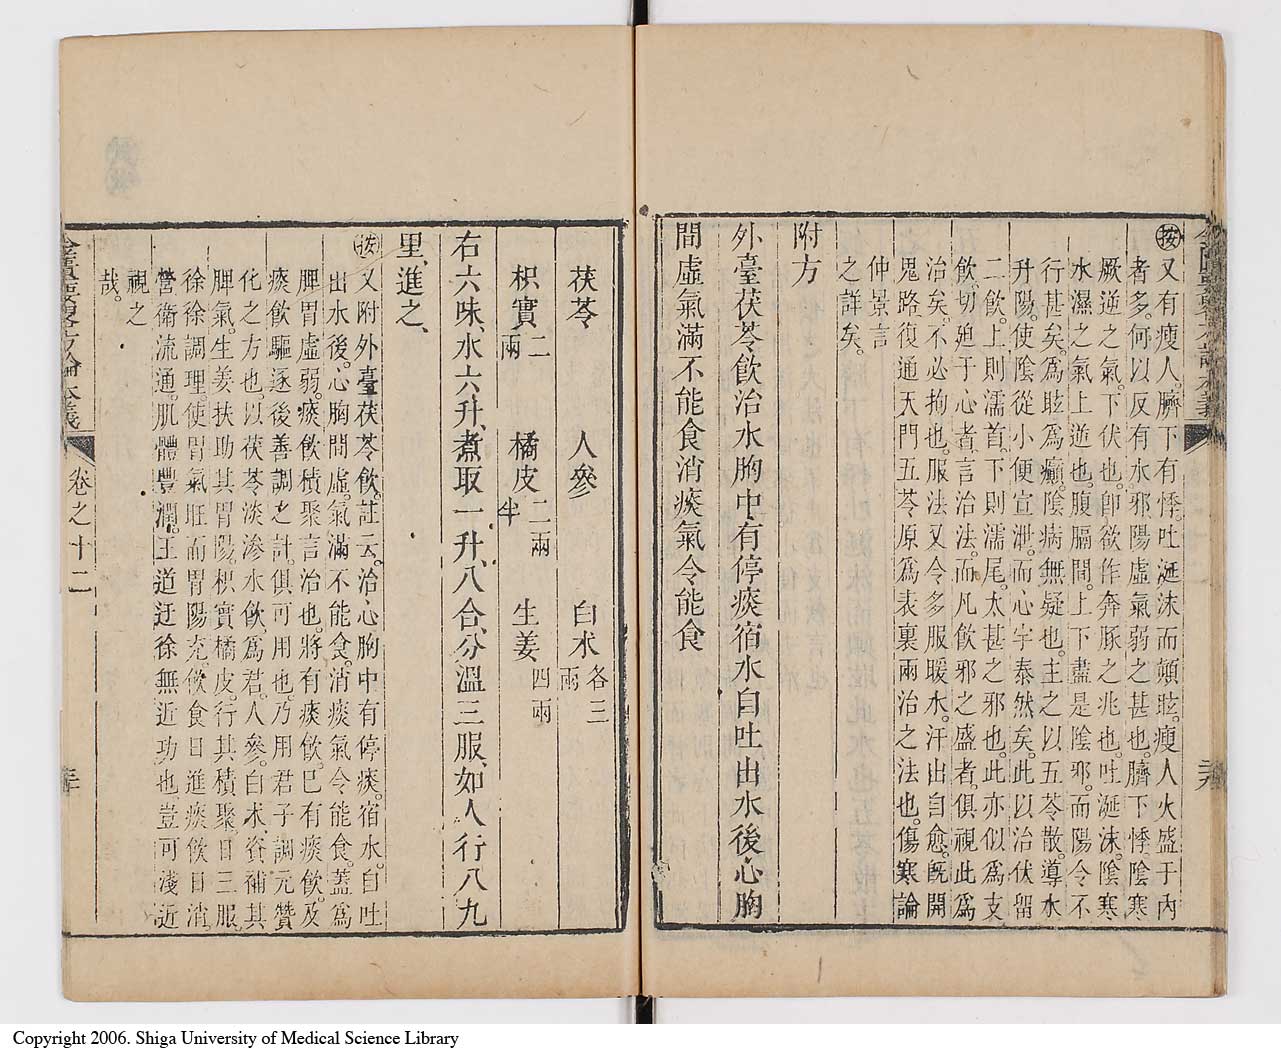 ㊟按又有瘦人。臍下有悸。吐涎沫而顛眩。瘦人火盛于內
者多。何以反有水邪陽虛氣弱之甚也。臍下悸陰寒
厥逆之氣。下伏也。卽欲作奔豚之兆也。吐涎沫。陰寒
水濕之氣上逆也。腹膈間。上下盡是陰邪。而陽令不
行甚矣。爲眩爲癲。陰病無疑也。主之以五苓散。導水
升陽。使陰從小便宣泄。而心宇泰然矣。此以治伏留
二飲。上則濡首。下則濡尾。太甚之邪也。此亦似爲支
飲。切廹于心者。言治法。而凡飲邪之盛者。俱視此爲
治矣。不必拘也。服法又令多服暖水。汗出自愈。旣開
鬼路復通天門五苓原爲表裏兩治之法也。傷寒論
仲景言
之詳矣。
附方
外臺茯苓飲治水胸中有停痰宿水自吐出水後心胸
間虛氣滿不能食消痰氣令能食
茯苓 人參 白朮各三兩
枳實二兩 橘皮二兩半 生姜四兩
右六味、水六升、煮取一升、八合、分溫三服、如人行八九
里、進之、
按又附外臺茯苓飲。註云。治心胸中有停痰。宿水。自吐
出水後。心胸間虛。氣滿不能食。消痰氣令能食。蓋爲
脾胃虛弱。痰飲積聚言治也。將有痰飲巳有痰飲。及
痰飲驅逐後善調之計。俱可用也乃用君子調元贊
化之方也。以茯苓淡滲水飲。爲君。人參。白朮。資補其
脾氣。生姜扶助其胃陽。枳實橘皮。行其積聚。日三服
徐徐調理。使胃氣旺而胃陽充。飲食日進痰飲日消
營衛流通。肌體豐潤。王道迂徐無近功也豈可淺近
視之
哉。
卷之十二